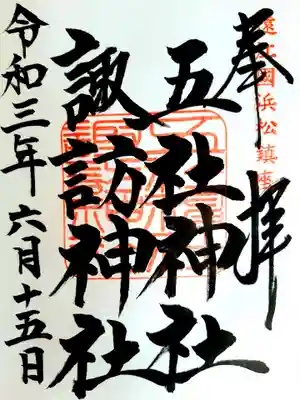 遠江國浜松鎮座
奉拝
五社神社
諏訪神社
令和三年六月十五日